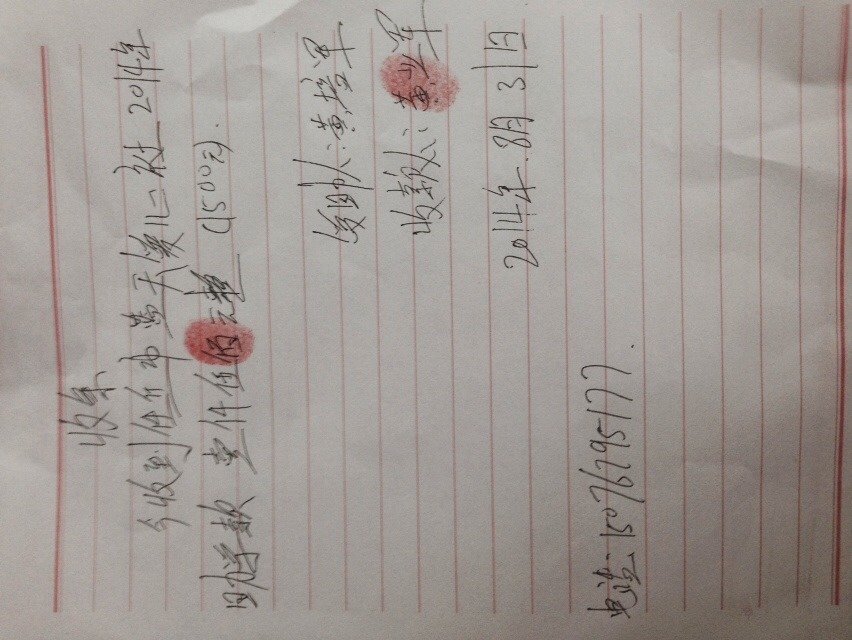 收条
今收到任丘市善天翼仁社 2014年
助学款 壹仟伍佰元整 (1500元).
资助人:黄培军
收款人:黄业军
2014年.8月31日
电话:15076795177.